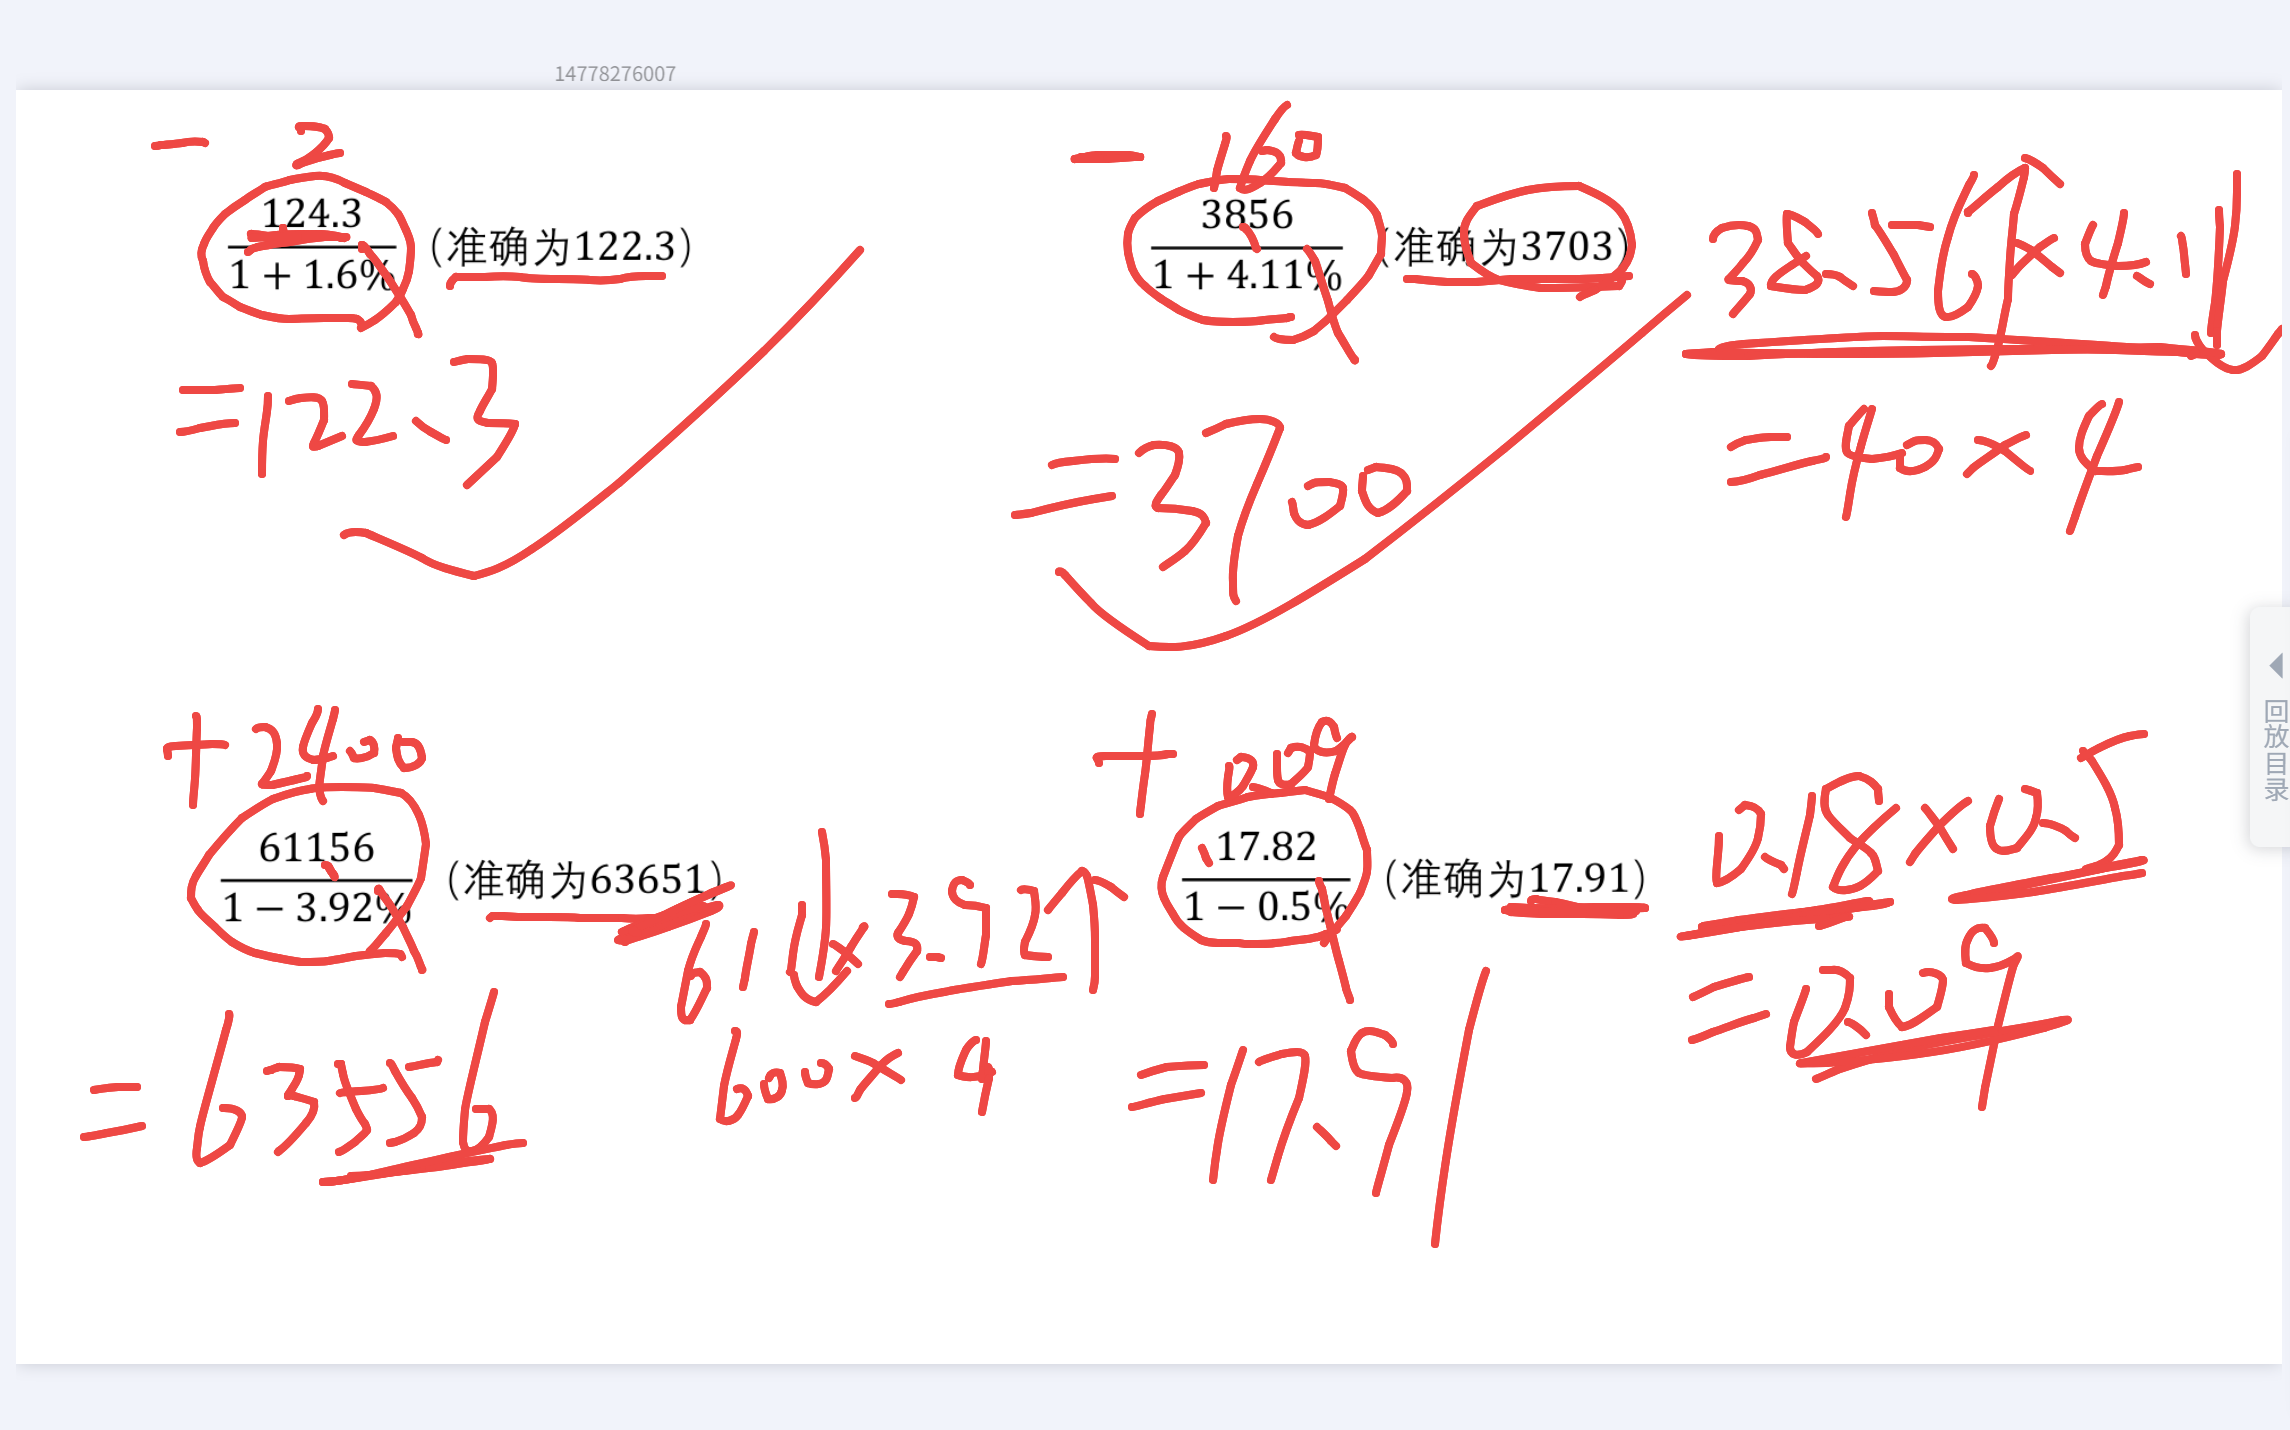 14778276007
− 2
124.3
1 + 1.6%
(准确为122.3)
=122.3
− 160
3856
1 + 4.11%
(准确为3703)
=3700
38.56×4.11
=40×4
+2400
61156
1 − 3.92%
(准确为63651)
=63556
611×3.92
600×4
+ 0.09
17.82
1 − 0.5%
(准确为17.91)
=17.91
0.18×0.5
=0.09
回放目录